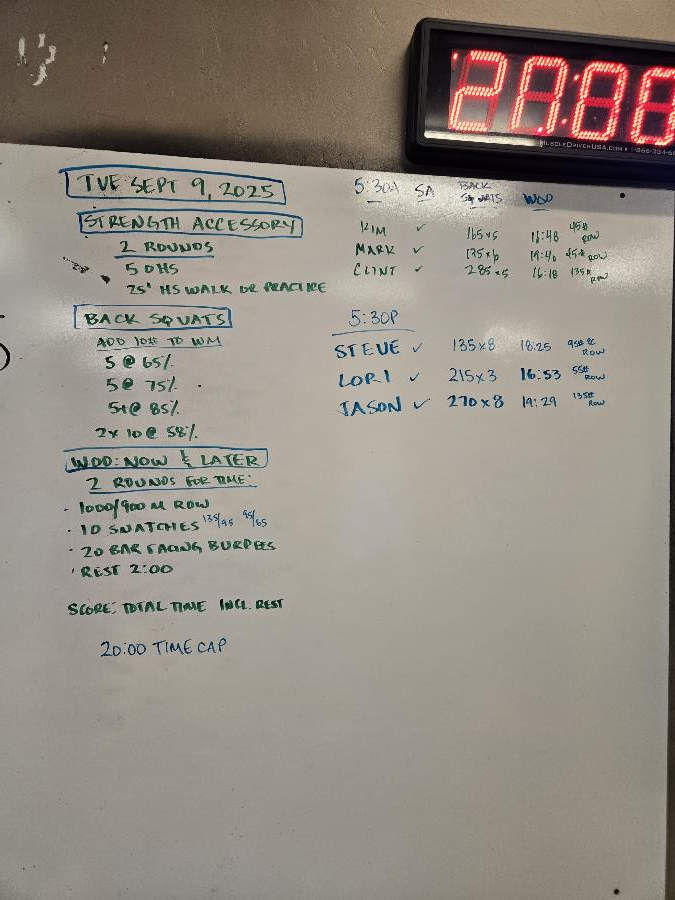 MUSCLEDRIVERUSA.COM
TUE SEPT 9, 2025
STRENGTH ACCESSORY
2 ROUNDS
5 OHS
25' HS WALK OR PRACTICE
BACK SQUATS
ADD 10# TO WM
5 @ 65%
5 @ 75%
5+ @ 85%
2 x 10 @ 58%
WOD: NOW & LATER
2 ROUNDS FOR TIME:
· 1000/900 M ROW
· 10 SNATCHES 135/95 95/65
· 20 BAR FACING BURPEES
· REST 2:00
SCORE: TOTAL TIME INCL. REST
20:00 TIME CAP
5:30A SA BACK SQUATS WOD
KIM ✓ 165x5 45# ROW
MARK ✓ 135x6 19:40 45# ROW
CLINT ✓ 285x5 16:18 135# ROW
5:30P
STEVE ✓ 135x8 18:25 95# ROW
LORI ✓ 215x3 16:53 55# ROW
JASON ✓ 270x8 19:29 135# ROW